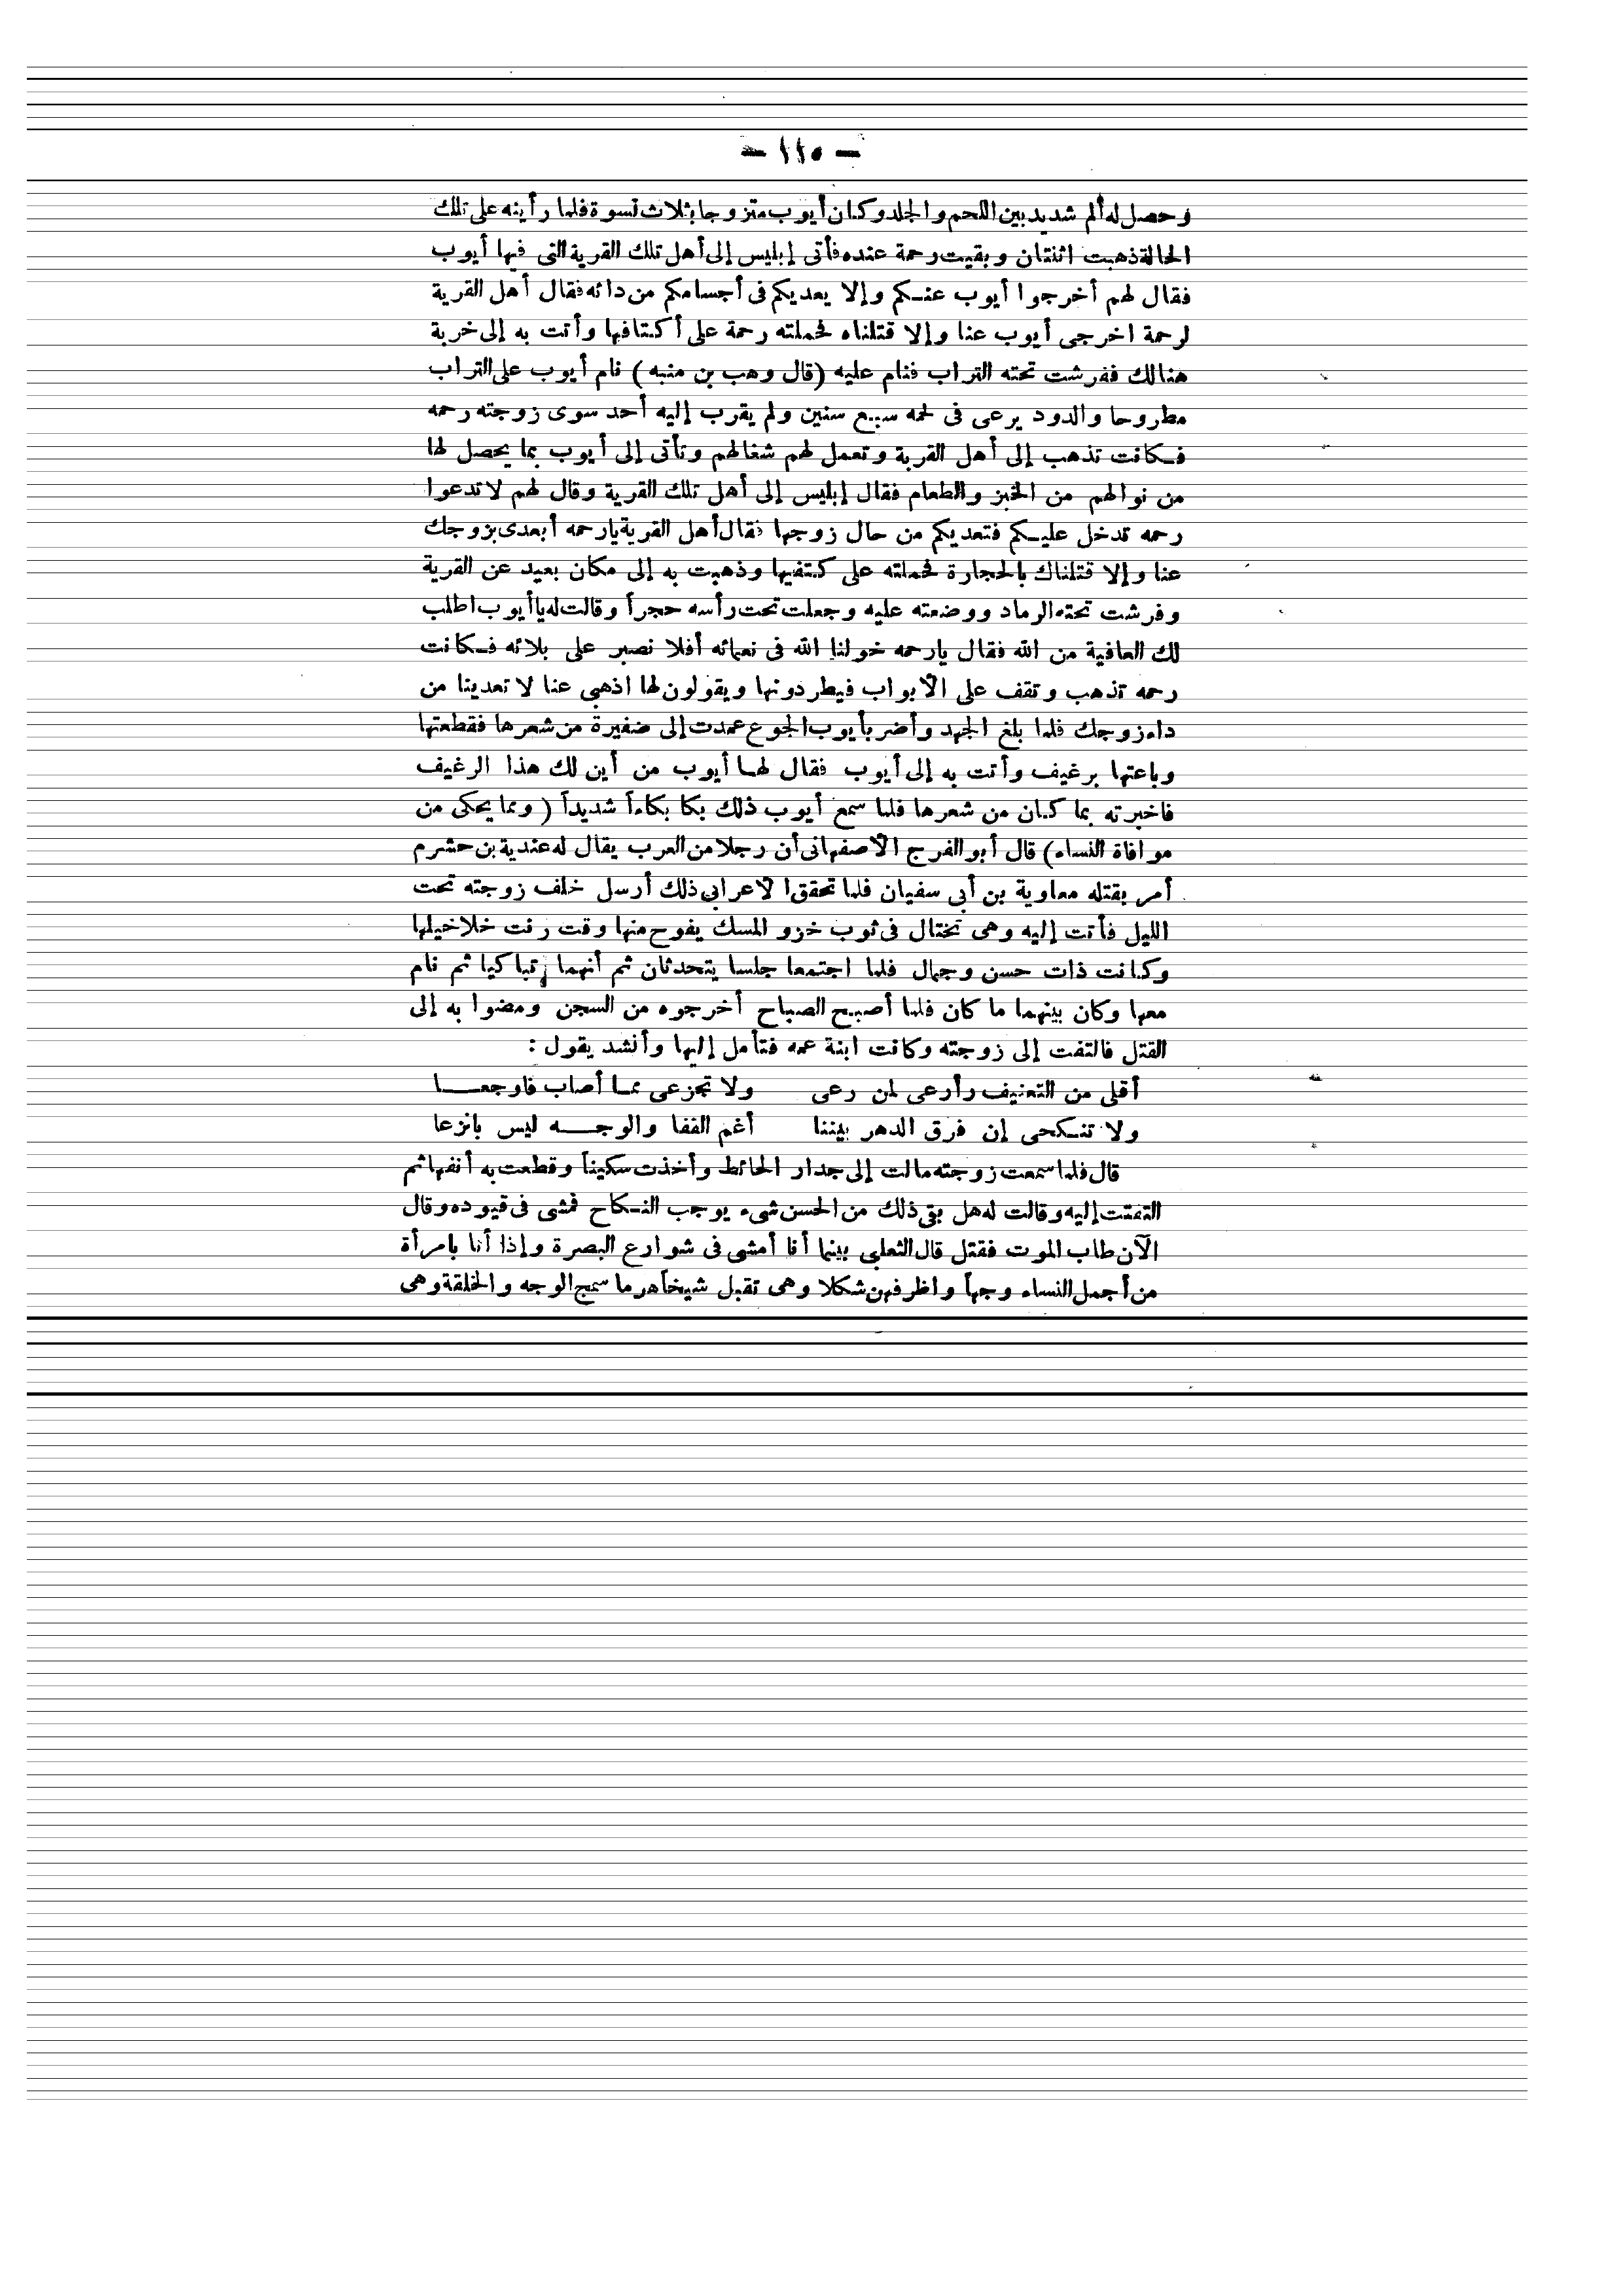 - ١١٥ -
وحصل له ألم شديد بين اللحم والجلد وكان أيوب متزوجا بثلاث نسوة فلما رأينه على تلك
الحالة ذهبت اثنتان وبقيت رحمة عنده فأتى إبليس إلى أهل تلك القرية التى فيها أيوب
فقال لهم أخرجوا أيوب عنكم وإلا يعديكم فى أجسامكم من دائه فقال أهل القرية
لرحمة اخرجى أيوب عنا وإلا قتلناه فحملته رحمة على أكتافها وأتت به إلى خربة
هنالك ففرشت تحته التراب فنام عليه (قال وهب بن منبه) نام أيوب على التراب
مطروحا والدود يرعى فى لحمه سبع سنين ولم يقرب إليه أحد سوى زوجته رحمه
فكانت تذهب إلى أهل القرية وتعمل لهم شغالهم وتأتى إلى أيوب بما يحصل لها
من نوالهم من الخبز والطعام فقال إبليس إلى أهل تلك القرية وقال لهم لا تدعوا
رحمه تدخل عليكم فتعديكم من حال زوجها فقال أهل القرية يارحمه أبعدى بزوجك
عنا وإلا قتلناك بالحجارة فحملته على كتفيها وذهبت به إلى مكان بعيد عن القرية
وفرشت تحته الرماد ووضعته عليه وجعلت تحت رأسه حجرأ وقالت له يا أيوب اطلب
لك العافية من الله فقال يارحمه خولنا الله فى نعمائه أفلا نصبر على بلائه فكانت
رحمه تذهب وتقف على الأبواب فيطردونها ويقولون لها اذهبي عنا لا تعدينا من
داء زوجك فلما بلغ الجهد وأضر بأيوب الجوع عمدت إلى ضفيرة من شعرها فقطعتها
وباعتها برغيف وأتت به إلى أيوب فقال لها أيوب من أين لك هذا الرغيف
فاخبرته بما كان من شعرها فلما سمع أيوب ذلك بكا بكاءأ شديدأ (ومما يحكى من
موافاة النساء) قال أبو الفرج الأصفهانى أن رجلا من العرب يقال له عندية بن حشرم
أمر بقتله معاوية بن أبي سفيان فلما تحقق الأعرابي ذلك أرسل خلف زوجته تحت
الليل فأتت إليه وهى تختال فى ثوب خزو المسك يفوح منها وقت رنت خلاخيلها
وكانت ذات حسن وجمال فلما اجتمعا جلسا يتحدثان ثم أنهما تباكيا ثم نام
معها وكان بينهما ما كان فلما أصبح الصباح أخرجوه من السجن ومضوا به إلى
القتل فالتفت إلى زوجته وكانت ابنة عمه فتأمل إليها وأنشد يقول :
أقلى من التعنيف وأرعى لمن رعى ولا تجزعى مما أصاب فاوجعا
ولا تنكحى إن فرق الدهر بيننا أغم القفا والوجه ليس بانزعا
قال فلما سمعت زوجته مالت إلى جدار الحائط وأخذت سكيناً وقطعت به أنفها ثم
التفتت إليه وقالت له هل بقى ذلك من الحسن شىء يوجب النكاح فمشى فى قيوده وقال
الآن طاب الموت فقتل قال الثعلبى بينما أنا أمشى فى شوارع البصرة وإذا أنا بامرأة
من أجمل النساء وجهاً واظرفهن شكلا وهى تقبل شيخاً هرما سمج الوجه والخلقة وهى